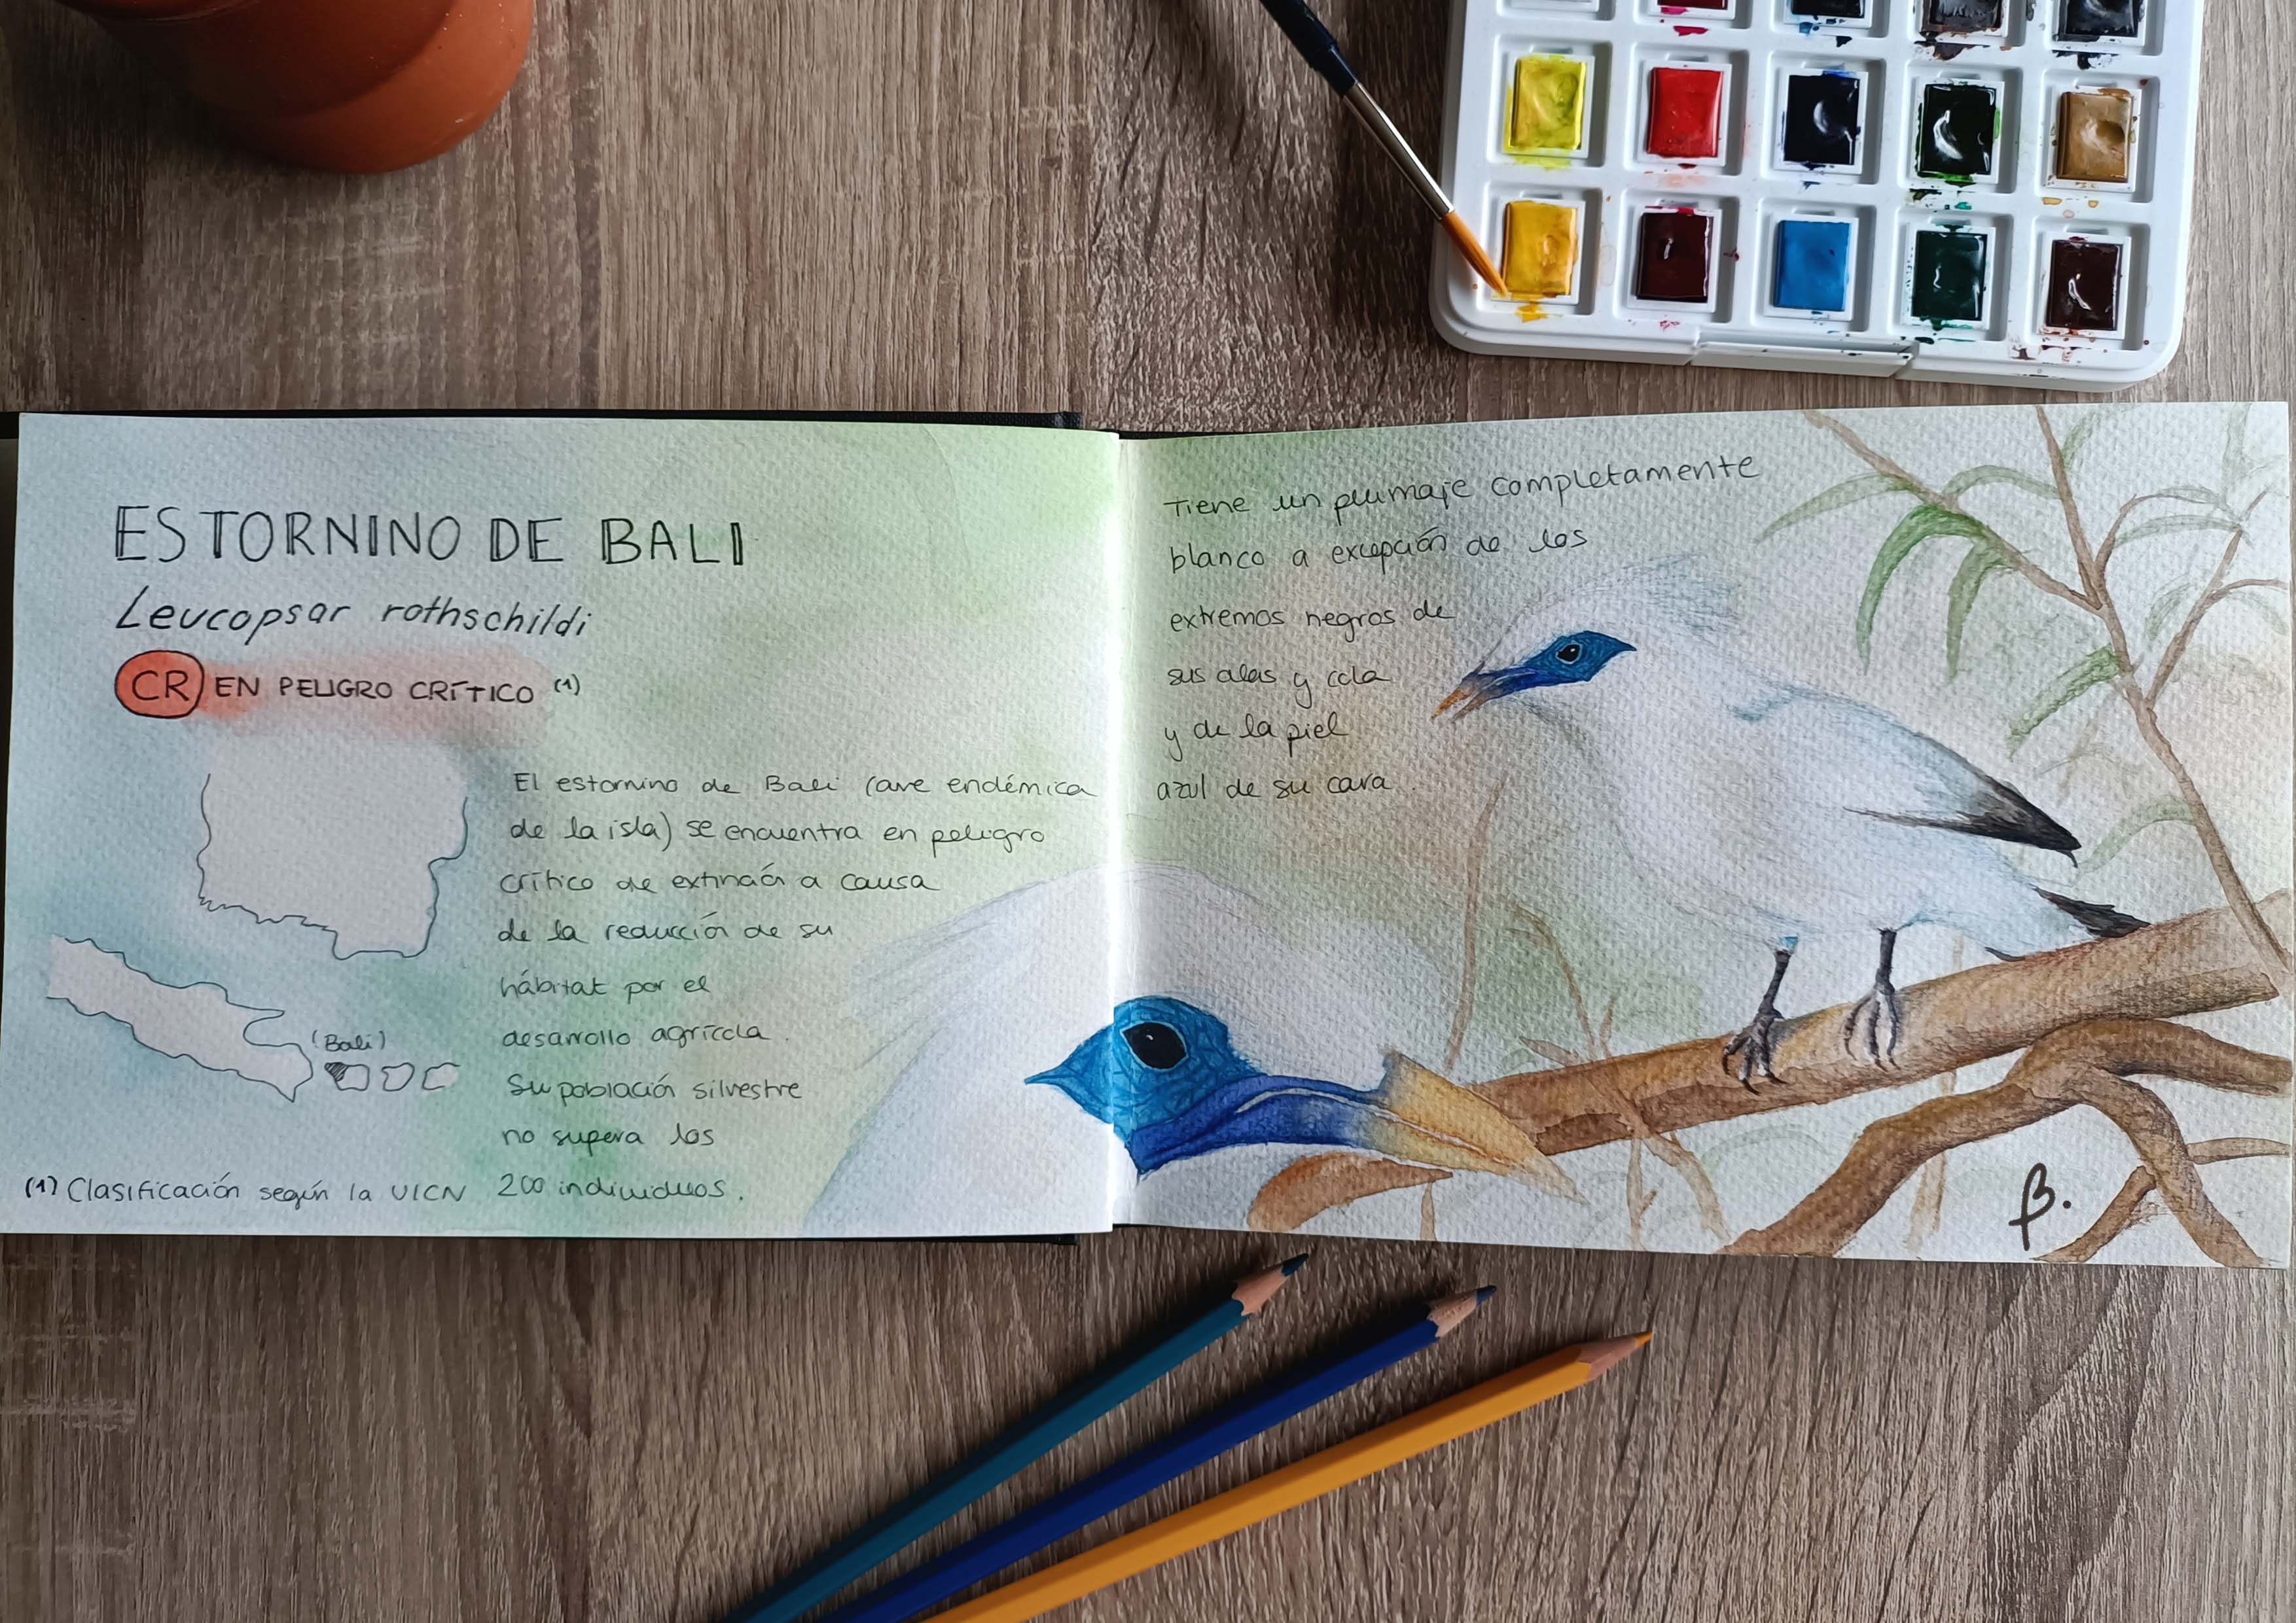 ESTORNINO DE BALI
Leucopsar rothschildi
CR EN PELIGRO CRÍTICO (1)
El estornino de Bali (ave endémica
de la isla) se encuentra en peligro
crítico de extinción a causa
de la reducción de su
hábitat por el
desarrollo agrícola.
Su población silvestre
no supera los
200 individuos.
(Bali)
(1) Clasificación según la UICN
Tiene un plumaje completamente
blanco a excepción de los
extremos negros de
sus alas y cola
y de la piel
azul de su cara.
B.